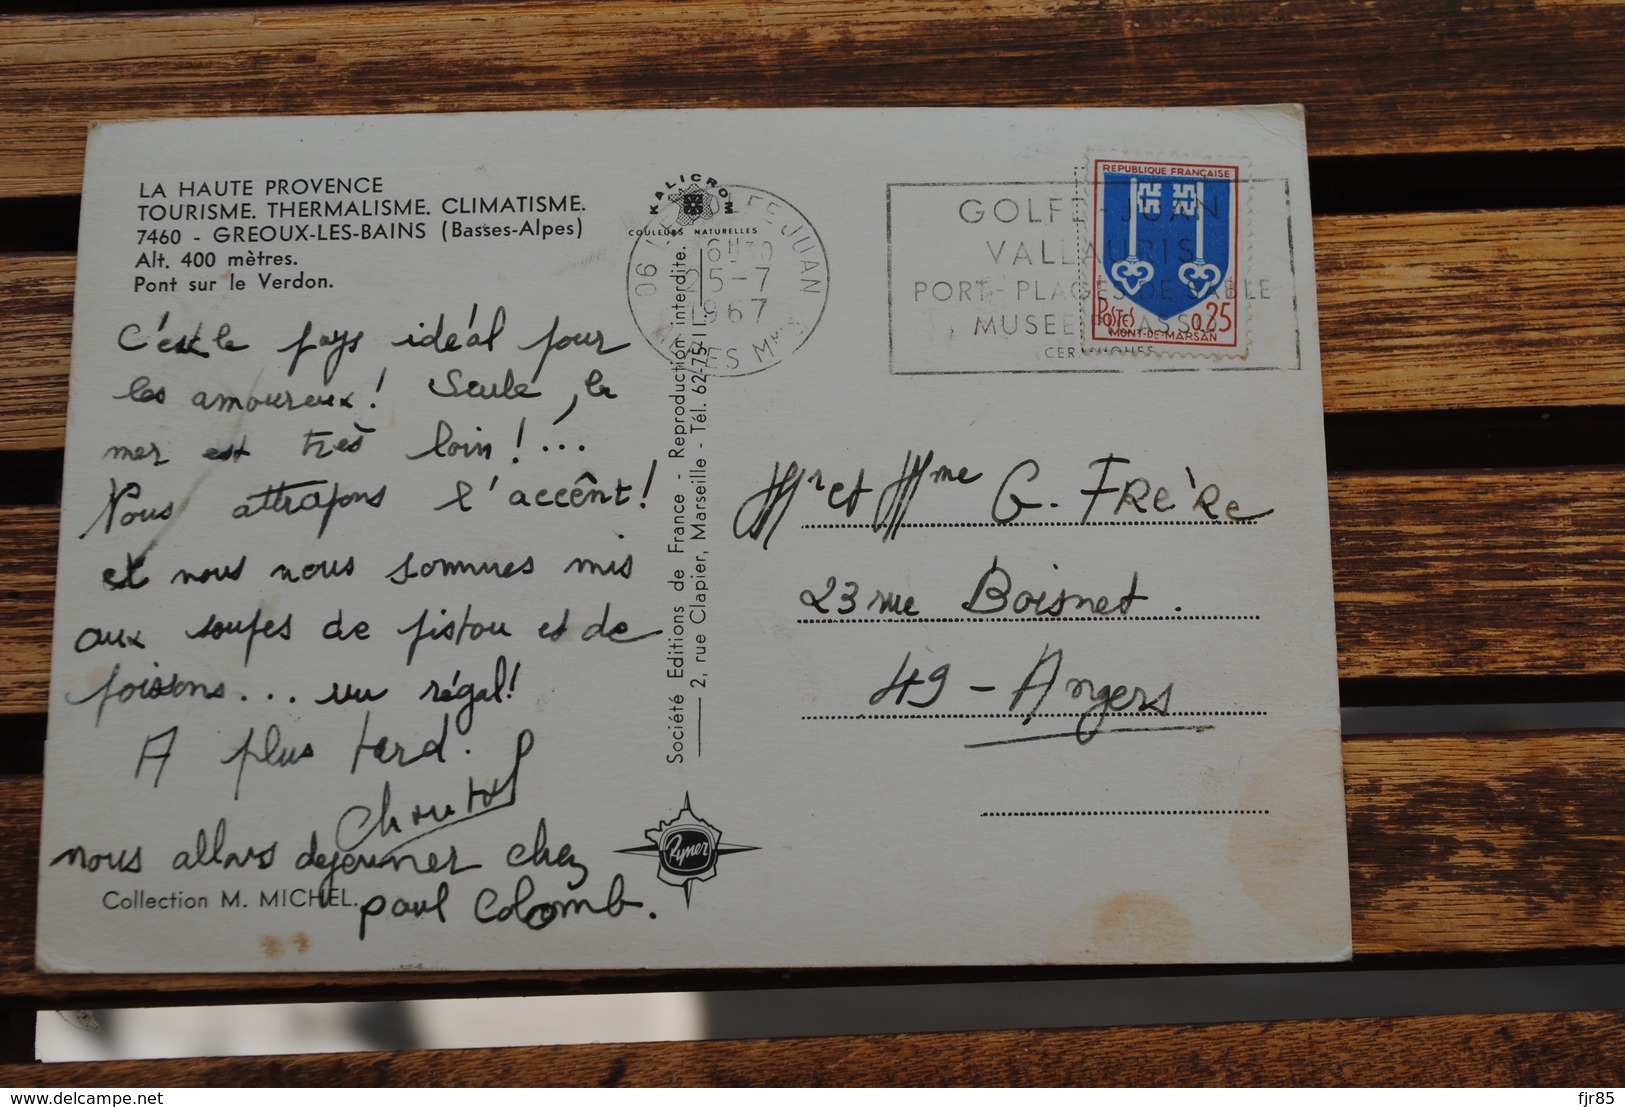 LA HAUTE PROVENCE
TOURISME. THERMALISME. CLIMATISME.
7460 - GREOUX-LES-BAINS (Basses-Alpes)
Alt. 400 mètres.
Pont sur le Verdon.
C'est le pays idéal pour
les amoureux! Seule, la
mer est très loin!...
Nous attrapons l'accênt!
et nous nous sommes mis
aux soupes de pistou et de
poissons... un régal!
A plus tard.
nous allons dejeuner chez
paul Colomb.
Collection M. MICHEL.
KALICROM
COULEURS NATURELLES
Société Editions de France - Reproduction interdite.
2, rue Clapier, Marseille - Tél. 62-75-11
Rymer
06 LE GOLFE JUAN
6H30
25-7
1967
GOLFE-JUAN
VALLAURIS
PORT - PLAGES DE SABLE
MUSEE PICASSO
CERAMIQUES
REPUBLIQUE FRANÇAISE
POSTES 0,25
MONT-DE-MARSAN
Mr et Mme G. FRERE
23 rue Boisnet.
49 - Angers
fjr85